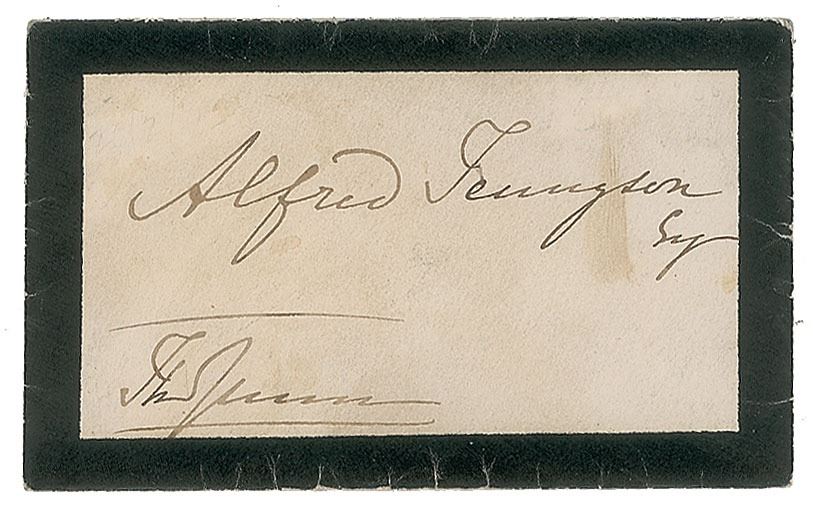 Alfred Tennyson
Esq
The Queen